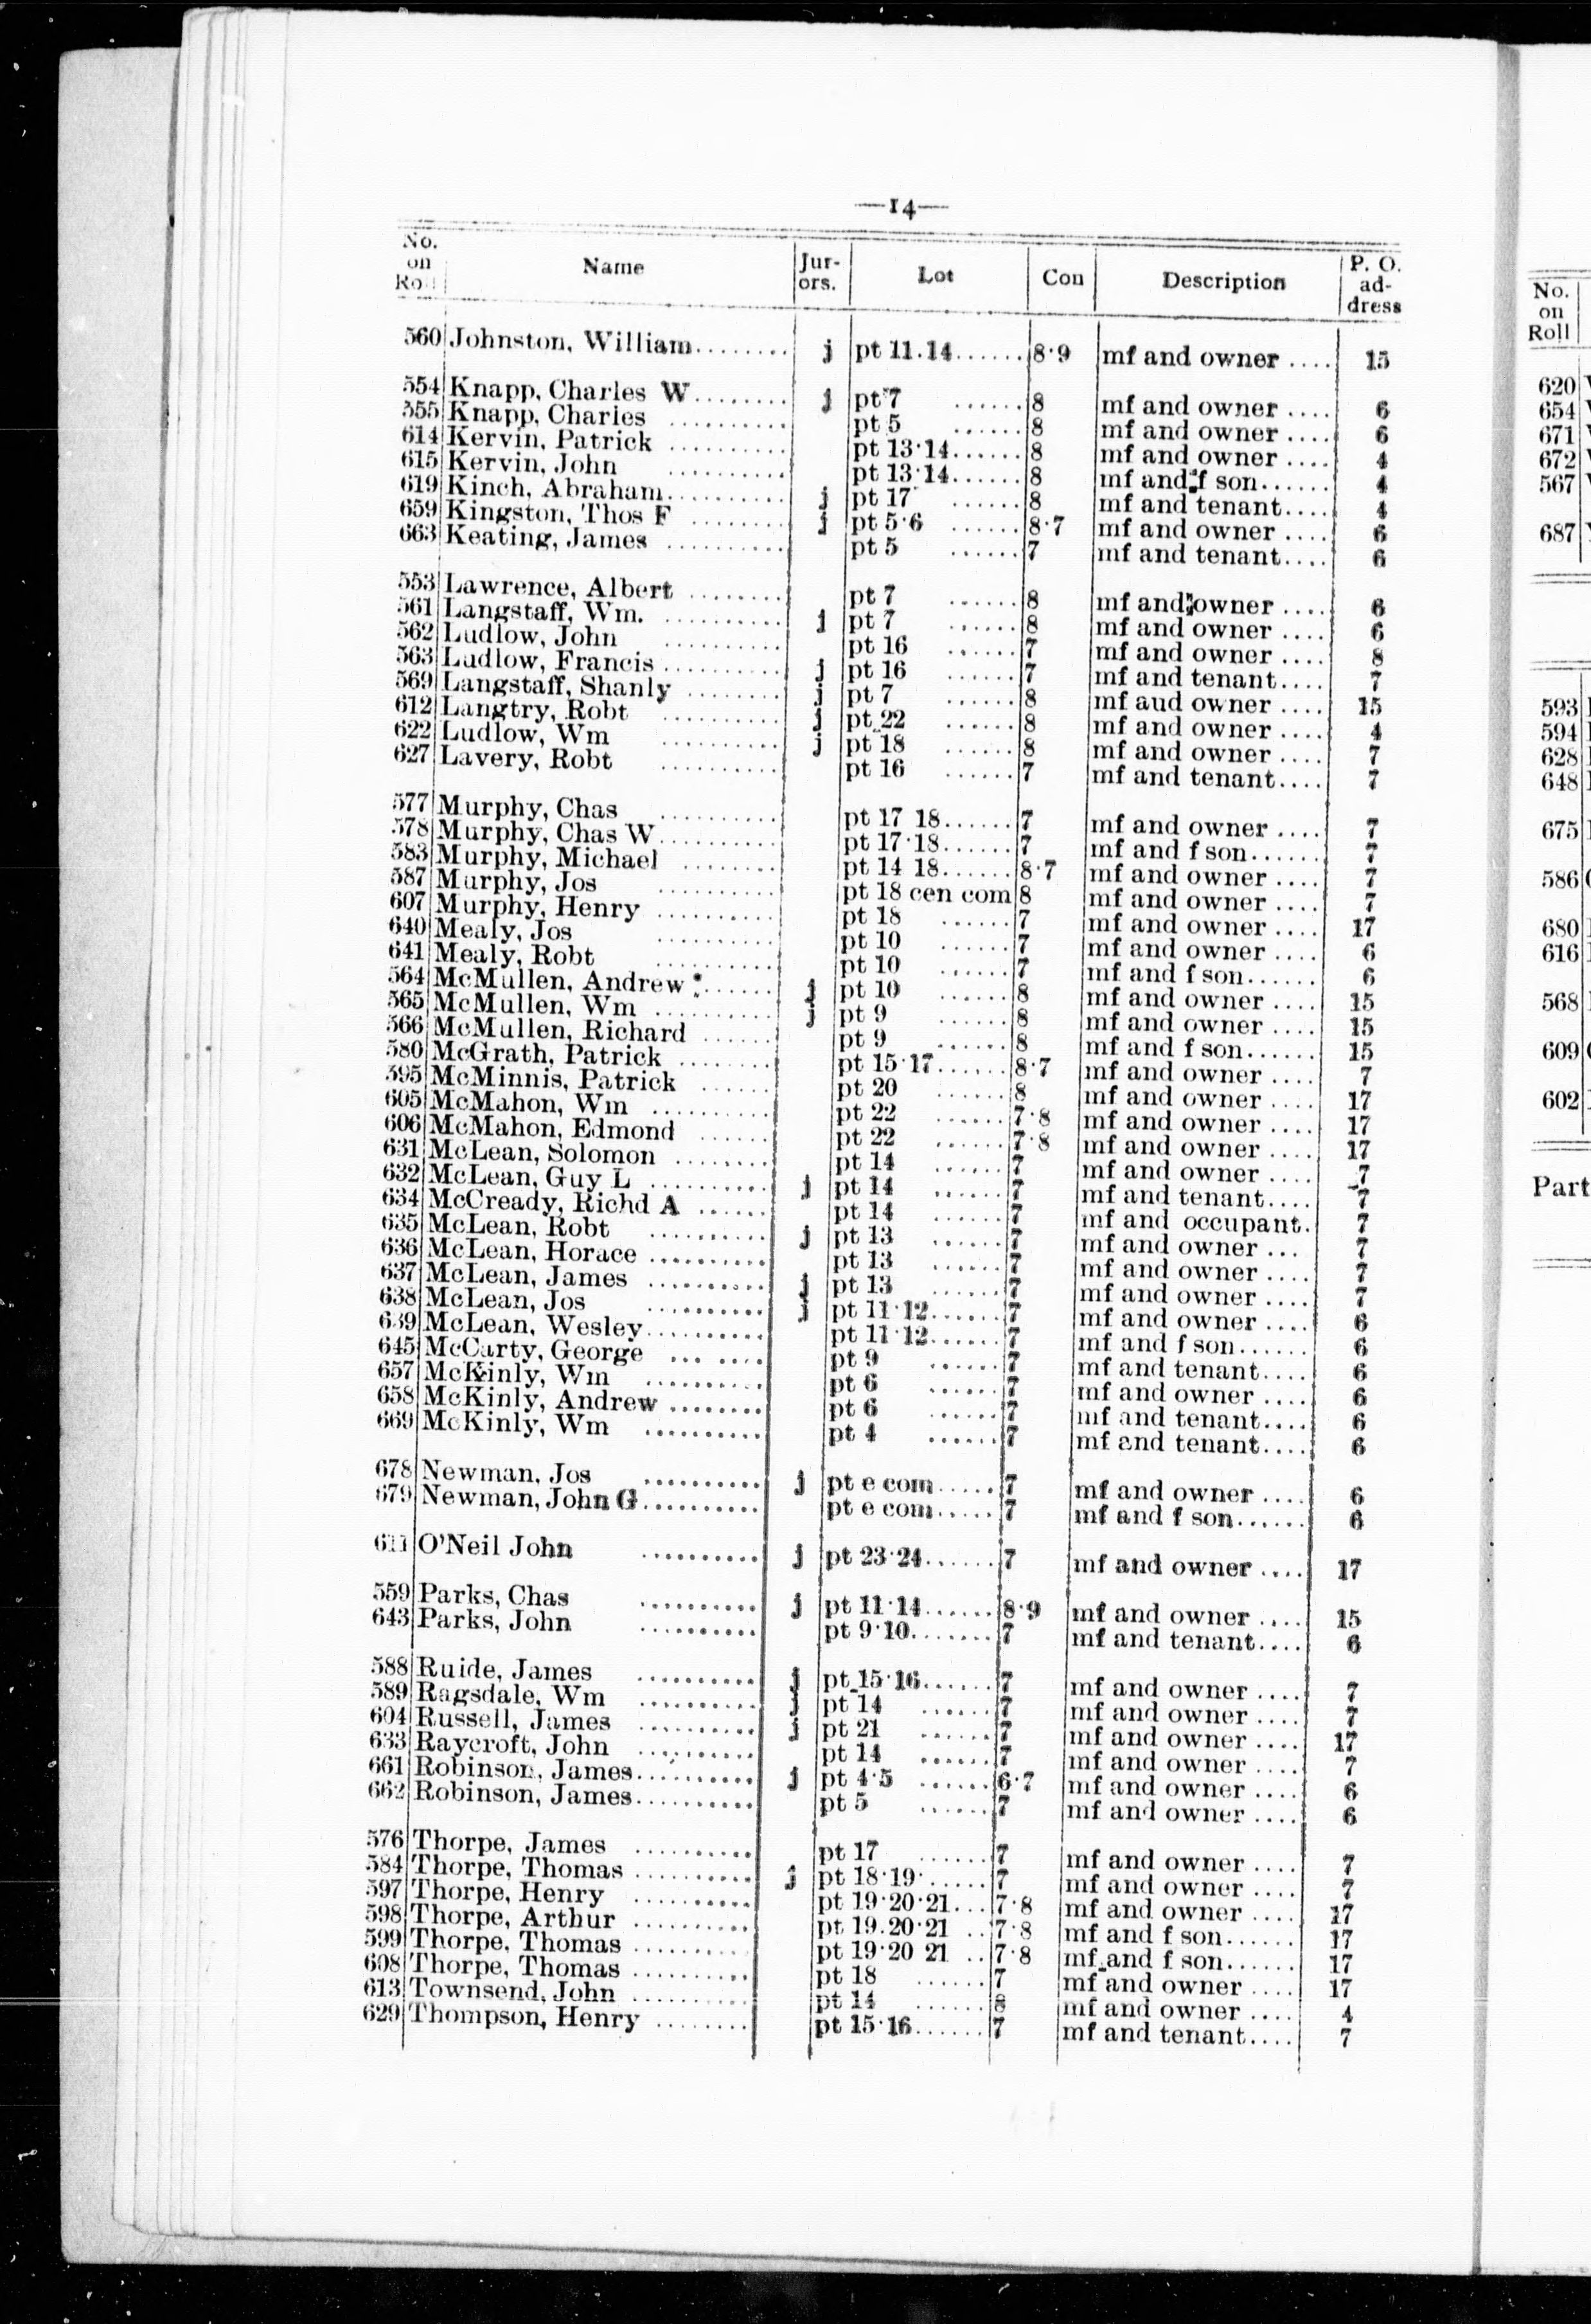 —14—
No. on Roll Name Jur-ors. Lot Con Description P. O. ad-dress
560 Johnston, William........ j pt 11.14...... 8·9 mf and owner .... 15
554 Knapp, Charles W........ j pt 7 ...... 8 mf and owner .... 6
555 Knapp, Charles .......... pt 5 ...... 8 mf and owner .... 6
614 Kervin, Patrick .......... pt 13·14...... 8 mf and owner .... 4
615 Kervin, John .......... pt 13·14...... 8 mf and f son...... 4
619 Kinch, Abraham.......... j pt 17 ...... 8 mf and tenant.... 4
659 Kingston, Thos F ........ j pt 5·6 ...... 8·7 mf and owner .... 6
663 Keating, James .......... pt 5 ...... 7 mf and tenant.... 6
553 Lawrence, Albert ........ pt 7 ...... 8 mf and owner .... 6
561 Langstaff, Wm. .......... j pt 7 ...... 8 mf and owner .... 6
562 Ludlow, John .......... pt 16 ...... 7 mf and owner .... 8
563 Ludlow, Francis .......... j pt 16 ...... 7 mf and tenant.... 7
569 Langstaff, Shanly ........ j pt 7 ...... 8 mf aud owner .... 15
612 Langtry, Robt .......... j pt 22 ...... 8 mf and owner .... 4
622 Ludlow, Wm .......... j pt 18 ...... 8 mf and owner .... 7
627 Lavery, Robt .......... pt 16 ...... 7 mf and tenant.... 7
577 Murphy, Chas .......... pt 17 18...... 7 mf and owner .... 7
578 Murphy, Chas W.......... pt 17·18...... 7 mf and f son...... 7
583 Murphy, Michael ........ pt 14 18...... 8·7 mf and owner .... 7
587 Murphy, Jos .......... pt 18 cen com 8 mf and owner .... 7
607 Murphy, Henry .......... pt 18 ...... 7 mf and owner .... 17
640 Mealy, Jos .......... pt 10 ...... 7 mf and owner .... 6
641 Mealy, Robt .......... pt 10 ...... 7 mf and f son...... 6
564 McMullen, Andrew ...... j pt 10 ...... 8 mf and owner .... 15
565 McMullen, Wm .......... j pt 9 ...... 8 mf and owner .... 15
566 McMullen, Richard ...... pt 9 ...... 8 mf and f son...... 15
580 McGrath, Patrick ........ pt 15·17...... 8·7 mf and owner .... 7
595 McMinnis, Patrick ...... pt 20 ...... 8 mf and owner .... 17
605 McMahon, Wm .......... pt 22 ...... 7·8 mf and owner .... 17
606 McMahon, Edmond ...... pt 22 ...... 7·8 mf and owner .... 17
631 McLean, Solomon ........ pt 14 ...... 7 mf and owner .... 7
632 McLean, Guy L .......... j pt 14 ...... 7 mf and tenant.... 7
634 McCready, Richd A ...... pt 14 ...... 7 mf and occupant. 7
635 McLean, Robt .......... j pt 13 ...... 7 mf and owner ... 7
636 McLean, Horace .......... pt 13 ...... 7 mf and owner .... 7
637 McLean, James .......... j pt 13 ...... 7 mf and owner .... 7
638 McLean, Jos .......... j pt 11·12...... 7 mf and owner .... 6
639 McLean, Wesley.......... pt 11·12...... 7 mf and f son...... 6
645 McCarty, George ... .... pt 9 ...... 7 mf and tenant.... 6
657 McKinly, Wm .......... pt 6 ...... 7 mf and owner .... 6
658 McKinly, Andrew ........ pt 6 ...... 7 mf and tenant.... 6
669 McKinly, Wm .......... pt 4 ...... 7 mf and tenant.... 6
678 Newman, Jos .......... j pt e com..... 7 mf and owner .... 6
679 Newman, John G.......... pt e com..... 7 mf and f son...... 6
611 O'Neil John .......... j pt 23·24...... 7 mf and owner .... 17
559 Parks, Chas .......... j pt 11·14...... 8·9 mf and owner .... 15
643 Parks, John .......... pt 9·10....... 7 mf and tenant.... 6
588 Ruide, James .......... j pt 15·16...... 7 mf and owner .... 7
589 Ragsdale, Wm .......... j pt 14 ...... 7 mf and owner .... 7
604 Russell, James .......... j pt 21 ...... 7 mf and owner .... 17
633 Raycroft, John .......... pt 14 ...... 7 mf and owner .... 7
661 Robinson, James.......... j pt 4·5 ...... 6·7 mf and owner .... 6
662 Robinson, James.......... pt 5 ...... 7 mf and owner .... 6
576 Thorpe, James .......... pt 17 ...... 7 mf and owner .... 7
584 Thorpe, Thomas .......... j pt 18·19· ..... 7 mf and owner .... 7
597 Thorpe, Henry .......... pt 19·20·21... 7·8 mf and owner .... 17
598 Thorpe, Arthur .......... pt 19.20·21 .. 7·8 mf and f son...... 17
599 Thorpe, Thomas .......... pt 19·20 21 .. 7·8 mf and f son...... 17
608 Thorpe, Thomas .......... pt 18 ...... 7 mf and owner .... 17
613 Townsend, John .......... pt 14 ...... 8 mf and owner .... 4
629 Thompson, Henry ........ pt 15·16...... 7 mf and tenant.... 7
No.
on
Roll
620
654
671
672
567
687
593
594
628
648
675
586
680
616
568
609
602
Part